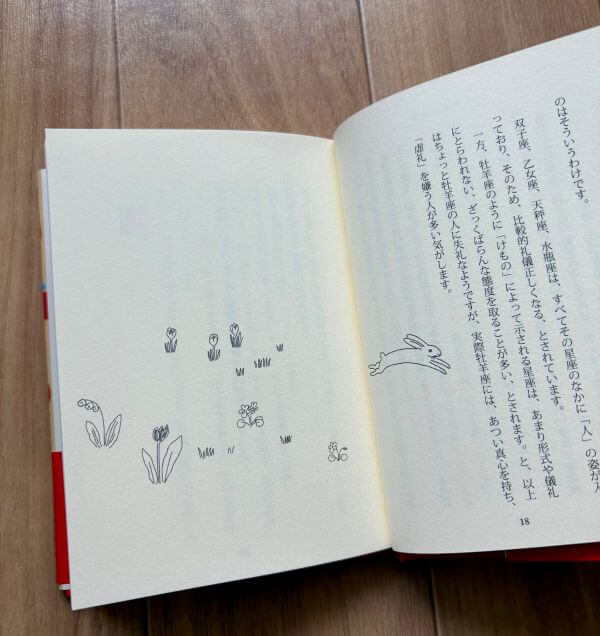 のはそういうわけです。
双子座、乙女座、天秤座、水瓶座は、すべてその星座のなかに「人」の姿が入
っており、そのため、比較的礼儀正しくなる、とされています。
一方、牡羊座のように「けもの」によって示される星座は、あまり形式や儀礼
にとらわれない、ざっくばらんな態度を取ることが多い、とされます。と、以上
はちょっと牡羊座の人に失礼なようですが、実際牡羊座には、あつい真心を持ち、
「虚礼」を嫌う人が多い気がします。
18